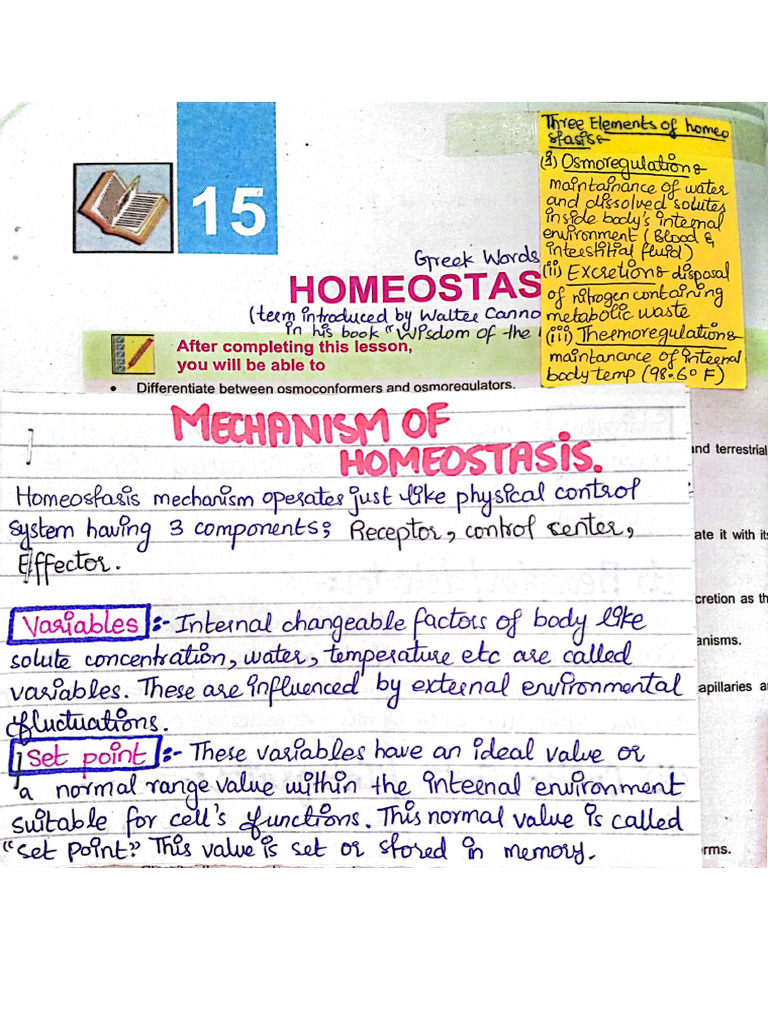 15
Greek Words
HOMEOSTAS
(term introduced by Walter Canno
in his book "Wisdom of the
After completing this lesson,
you will be able to
• Differentiate between osmoconformers and osmoregulators.
Three Elements of homeo
stasis:-
(i) Osmoregulation:-
maintainance of water
and dissolved solutes
inside body's internal
environment (Blood &
interstitial fluid)
(ii) Excretion:- disposal
of nitrogen containing
metabolic waste
(iii) Thermoregulation:-
maintanance of internal
body temp (98.6° F)
MECHANISM OF
HOMEOSTASIS.
Homeostasis mechanism operates just like physical control
system having 3 components; Receptor, control center,
Effector.
Variables :- Internal changeable factors of body like
solute concentration, water, temperature etc are called
variables. These are influenced by external environmental
fluctuations.
Set point :- These variables have an ideal value or
a normal range value within the internal environment
suitable for cell's functions. This normal value is called
"set point." This value is set or stored in memory.
and terrestrial
ate it with it
cretion as th
anisms.
apillaries a
rms.